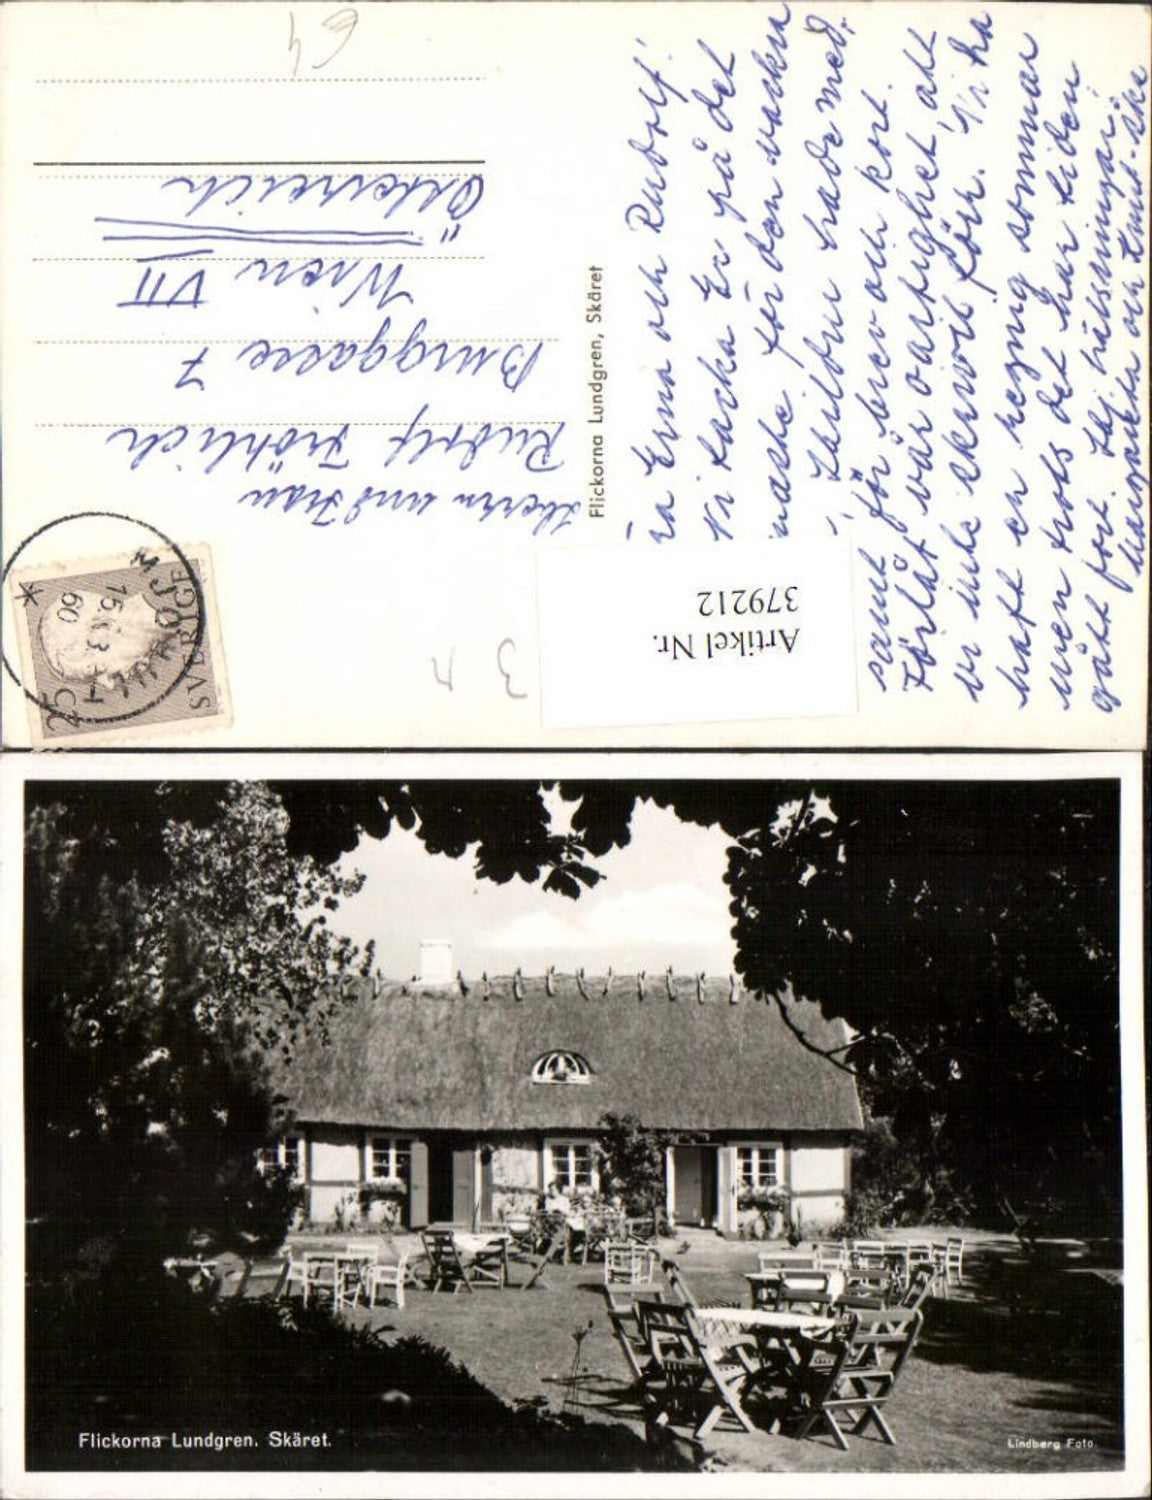 E4
Herrn und Frau
Rudolf Fröhlich
Burggasse 7
Wien VII
Österreich
SVERIGE
25
15.
60
Flickorna Lundgren, Skäret
Artikel Nr.
379212
3
Erna och Rudolf!
Vi tacka Er på det
för den vackra
hade med,
samt för brev och kort.
Förlåt vår oartighet, att
vi inte skrivit förr. Vi ha
haft en regnig sommar
men trots det har tiden
gått fort. Hälsningar
Margareta och
Flickorna Lundgren. Skäret.
Lindberg Foto